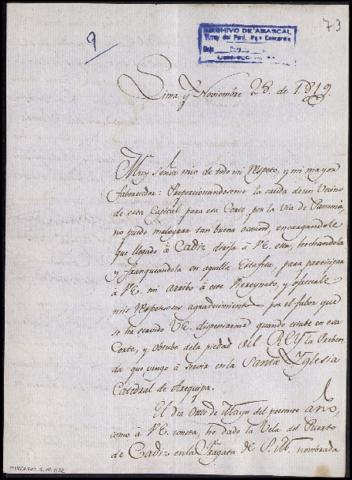 9
73
ARCHIVO DE ABASCAL
Lima y Noviembre 28. de 1812
Muy Señor mio de todo mi respeto, y mi mayor
favorecedor: Proporcionandoseme la salida de un Vecino
de esta Capital para esa Corte por la via de Panamá,
no puedo malograr tan buena ocasion, encargandole
que llegado à Cadiz dirija à VE. esta, hechandola
y franqueandola en aquella Estafeta, para participar
à VE. mi arribo à este Reyno, y ofrecerle
mis respetuosos agradecimientos por el favor que
se ha servido VE. dispensarme quando estube en esa
Corte, y obtube de la piedad del REY la Preben-
da que vengo à servir en la Santa Yglesia
Catedral de Arequipa.
El dia Once de Mayo del presente año,
como à VE. consta, he dado la Vela del Puerto
de Cadiz en la Fragata de S.M. nombrada